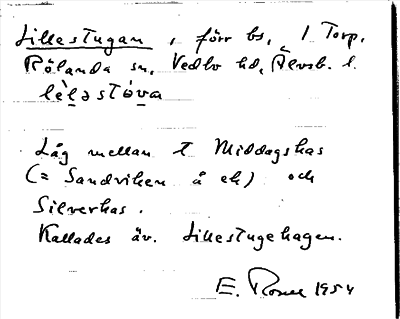 Lillestugan, förr bs, / Torp,
Rölanda sn, Vedbo hd, Älvsb. l.
lèḷəstòva
Låg mellan t Middagskas
(= Sandviken å ek) och
Silverkas.
Kallades äv. Lillestugehagen.
E. 1954